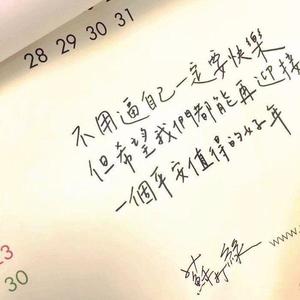 28 29 30 31
不用逼自己一定要快樂
但希望我們都能再迎接
一個平安值得的好年
www.
30